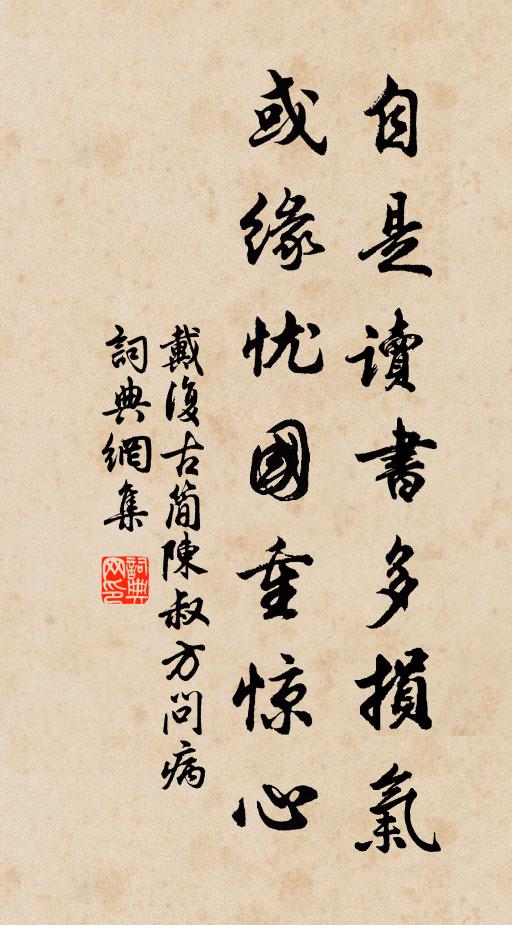 自是讀書多損氣
或缘忧國重惊心
戴復古简陳叔方問病
詞典網集
詞典
网印